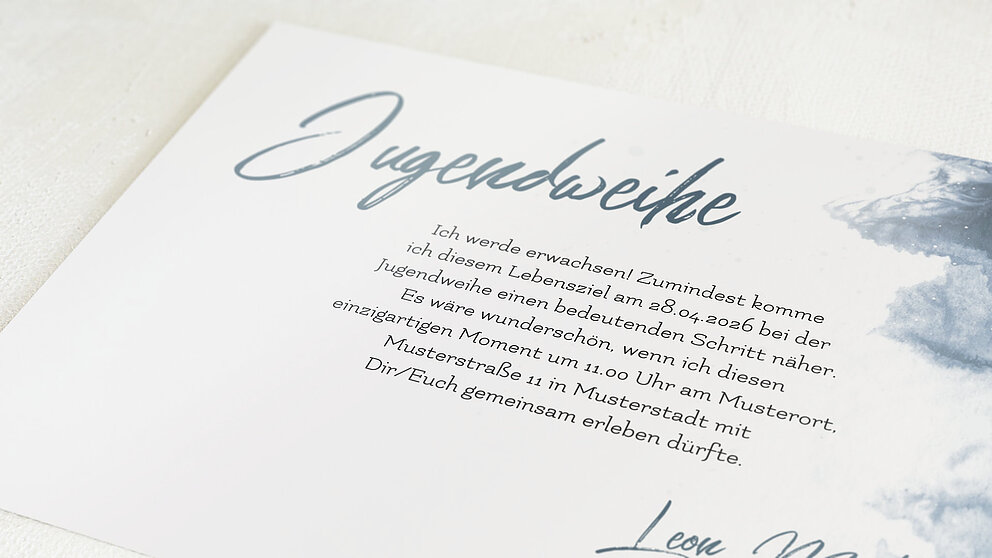 Jugendweihe
Ich werde erwachsen! Zumindest komme
ich diesem Lebensziel am 28.04.2026 bei der
Jugendweihe einen bedeutenden Schritt näher.
Es wäre wunderschön, wenn ich diesen
einzigartigen Moment um 11.00 Uhr am Musterort,
Musterstraße 11 in Musterstadt mit
Dir/Euch gemeinsam erleben dürfte.
Leon